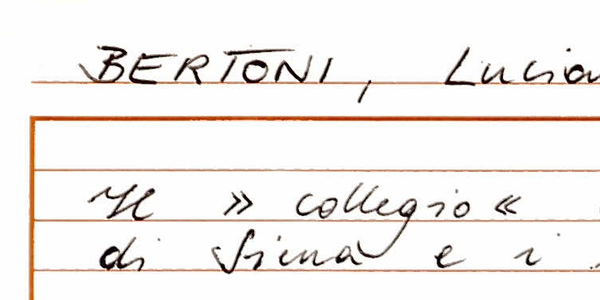 BERTONI, Lucian
Il » collegio «
di Siena e i